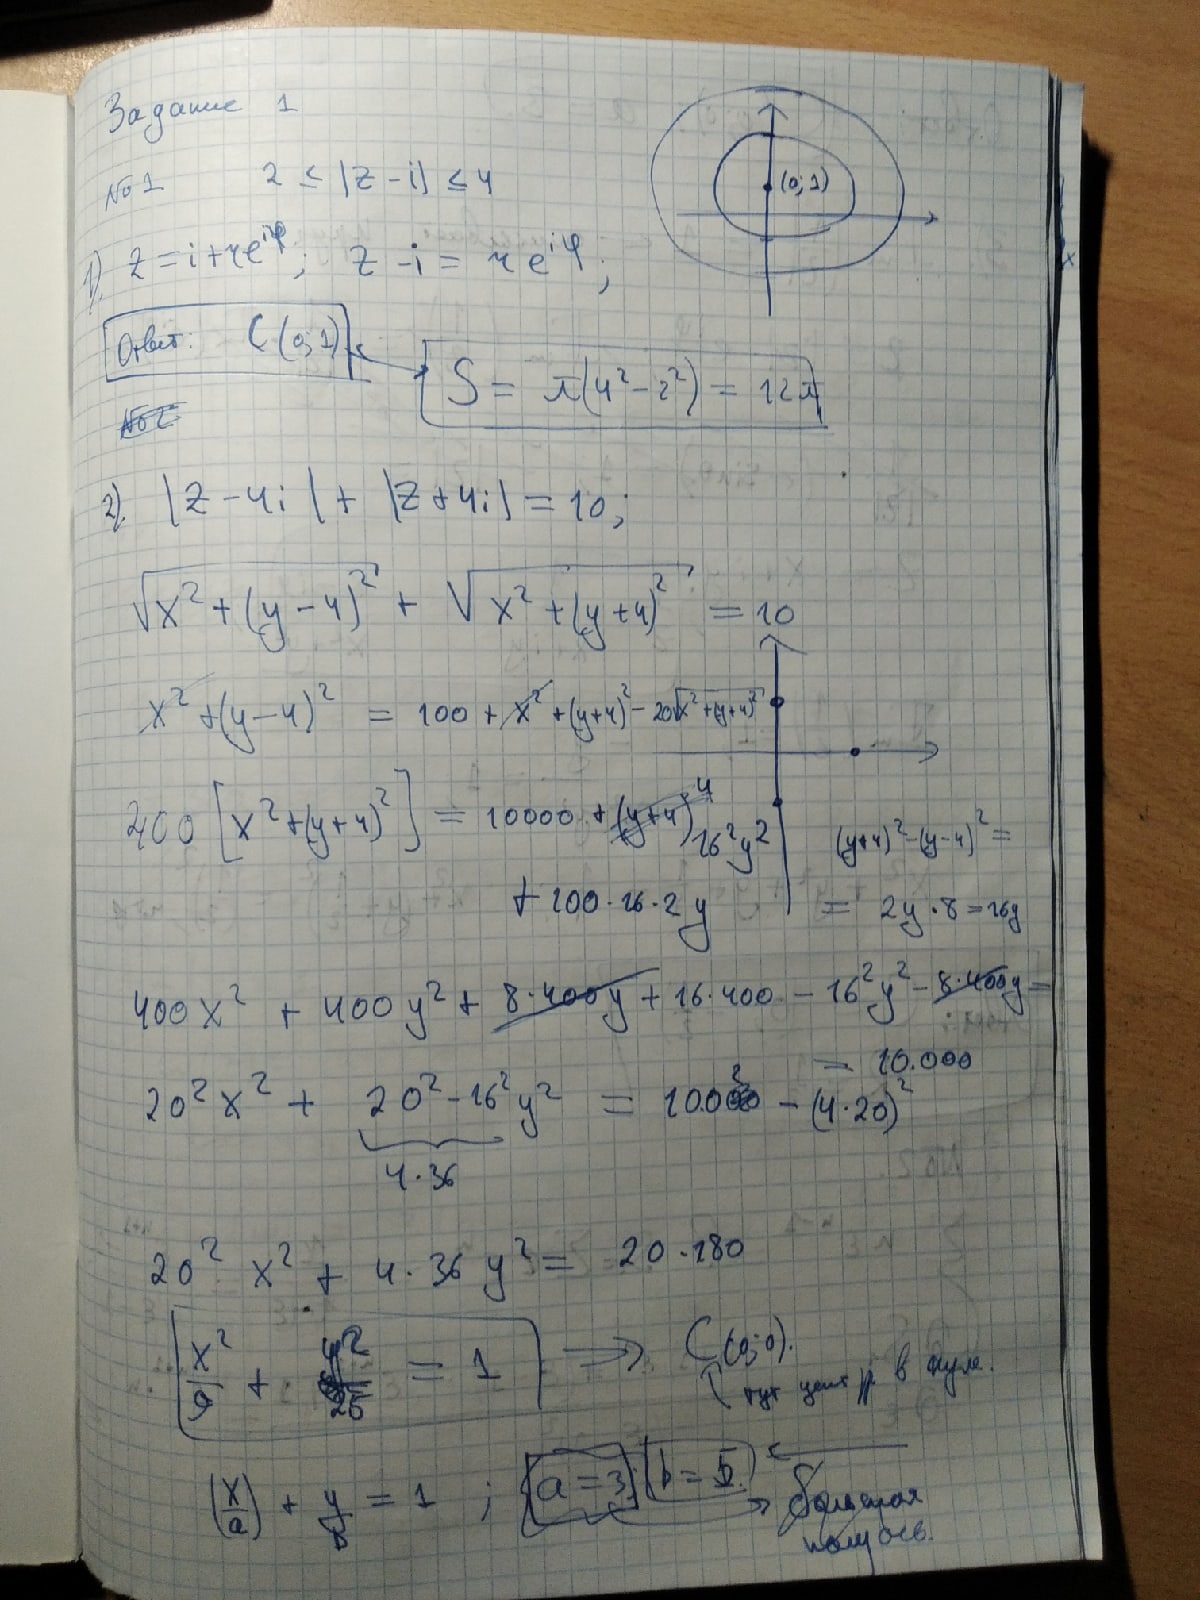 Задание 1
(0;1)
№1 2 ≤ |z - i| ≤ 4
1) z = i + re^{iφ}; z - i = re^{iφ};
Ответ: C(0;1)
S = π(4² - 2²) = 12π
№2
2) |z - 4i| + |z + 4i| = 10;
√(x² + (y - 4)²) + √(x² + (y + 4)²) = 10
x² + (y - 4)² = 100 + x² + (y+4)² - 20√(x² + (y+4)²)
400 [x² + (y + 4)²] = 10000 + (y+4)⁴ 16²y²
+ 100·16·2y
(y+4)² - (y-4)² =
= 2y·8 = 16y
400x² + 400y² + 8·400y + 16·400 - 16²y² - 8·400y =
= 10.000
20²x² + 20² - 16² y² = 100² - (4·20)²
4·36
20² x² + 4·36 y² = 20·180
x²/9 + y²/25 = 1 → C(0;0).
тут центр в нуле.
(x/a) + y/b = 1 ; a = 3; b = 5.
большая
полуось.